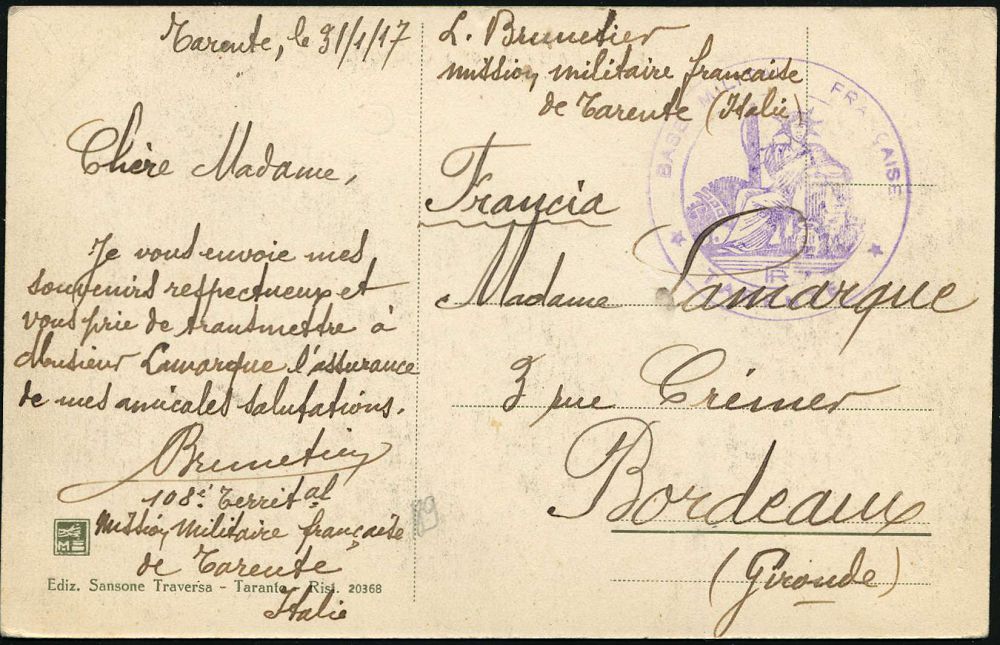 Tarente, le 31/1/17
Chère Madame,
Je vous envoie mes
souvenirs respectueux et
vous prie de transmettre à
Monsieur Lamarque l'assurance
de mes amicales salutations.
Brunetier
108e territal
Mission Militaire française
de Tarente
Italie
Ediz. Sansone Traversa - Taranto - Rist. 20368
L. Brunetier
mission militaire française
de Tarente (Italie)
Francia
Madame Lamarque
3 rue Crémer
Bordeaux
(Gironde)
BASE MILITAIRE FRANÇAISE